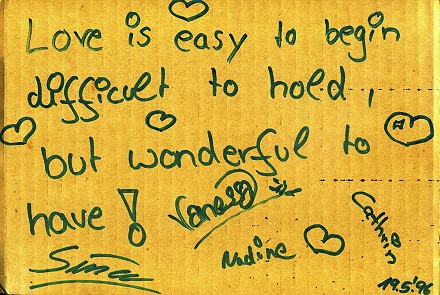 Love is easy to begin
difficult to hold,
but wonderful to
have!
Vanessa
Nadine
Cathrin
19.5.'96